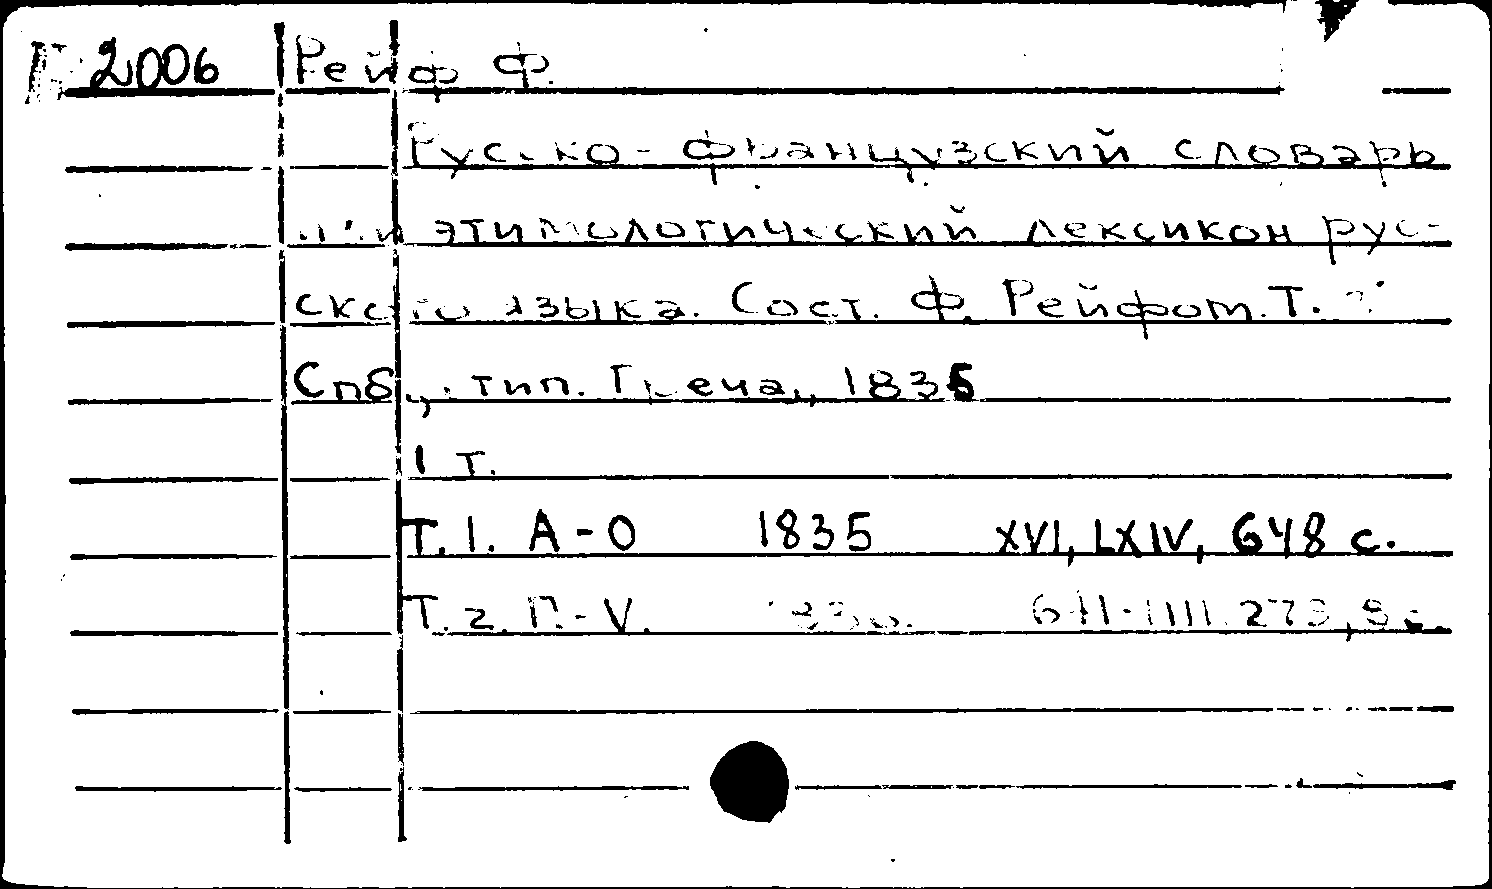 2006 Рейф Ф.
Русско-французский словарь
или этимологический лексикон рус-
ского языка. Сост. Ф. Рейфом. Т.
Спб., тип. Греча, 1835
1 т.
Т. 1. А-О 1835 XVI, LXIV, 648 с.
Т. 2. П-V.